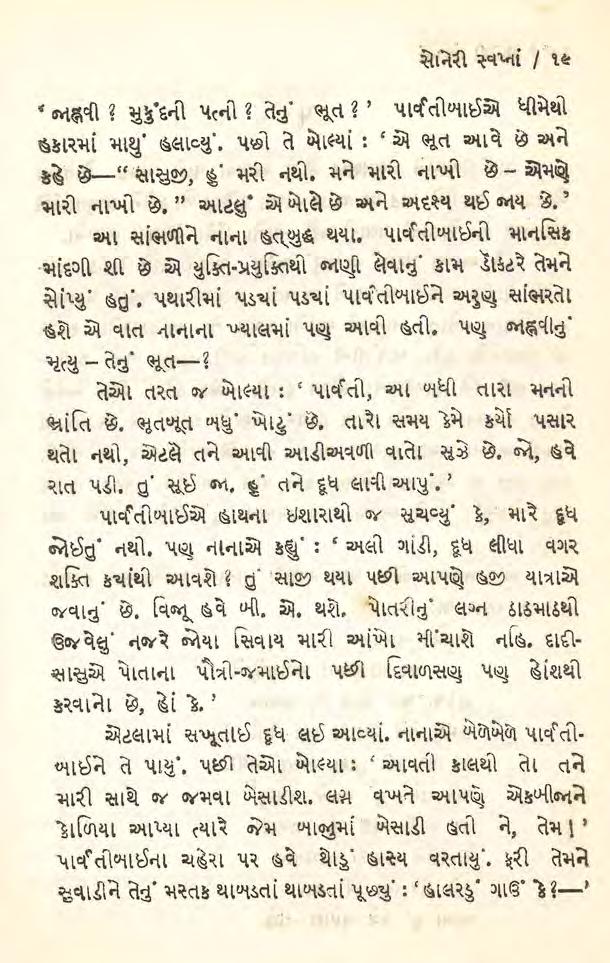 સોનેરી સ્વપ્નાં / ૧૯
‘ જાહ્નવી ? મુકુંદની પત્ની ? તેનું ભૂત ? ’ પાર્વતીબાઈએ ધીમેથી
હકારમાં માથું હલાવ્યું. પછી તે બોલ્યાં : ‘ એ ભૂત આવે છે અને
કહે છે—“ સાસુજી, હું મરી નથી. મને મારી નાખી છે – એમણે
મારી નાખી છે. ” આટલું એ બોલે છે અને અદૃશ્ય થઈ જાય છે. ’
આ સાંભળીને નાના હતબુદ્ધ થયા. પાર્વતીબાઈની માનસિક
માંદગી શી છે એ યુક્તિ-પ્રયુક્તિથી જાણી લેવાનું કામ ડૉકટરે તેમને
સોંપ્યું હતું. પથારીમાં પડ્યાં પડ્યાં પાર્વતીબાઈને અરુણ સાંભરતો
હશે એ વાત નાનાના ખ્યાલમાં પણ આવી હતી. પણ જાહ્નવીનું
મૃત્યુ – તેનું ભૂત—?
તેઓ તરત જ બોલ્યા : ‘ પાર્વતી, આ બધી તારા મનની
ભ્રાંતિ છે. ભૂતબૂત બધું ખોટું છે. તારો સમય કેમે કર્યો પસાર
થતો નથી, એટલે તને આવી આડીઅવળી વાતો સૂઝે છે. જો, હવે
રાત પડી. તું સૂઈ જા. હું તને દૂધ લાવી આપું. ’
પાર્વતીબાઈએ હાથના ઇશારાથી જ સૂચવ્યું કે, મારે દૂધ
જોઈતું નથી. પણ નાનાએ કહ્યું : ‘ અલી ગાંડી, દૂધ લીધા વગર
શક્તિ ક્યાંથી આવશે ? તું સાજી થયા પછી આપણે હજી યાત્રાએ
જવાનું છે. વિજૂ હવે બી. એ. થશે. પોતરીનું લગ્ન ઠાઠમાઠથી
ઉજવેલું નજરે જોયા સિવાય મારી આંખો મીંચાશે નહિ. દાદી-
સાસુએ પોતાના પૌત્રી-જમાઈનો પછી દિવાળસણ પણ હોંશથી
કરવાનો છે, હોં કે. ’
એટલામાં સખૂતાઈ દૂધ લઈ આવ્યાં. નાનાએ ખોળેખોળે પાર્વતી-
બાઈને તે પાયું. પછી તેઓ બોલ્યા : ‘ આવતી કાલથી તો તને
મારી સાથે જ જમવા બેસાડીશ. લગ્ન વખતે આપણે એકબીજાને
કોળિયા આપ્યા ત્યારે જેમ બાજુમાં બેસાડી હતી ને, તેમ ! ’
પાર્વતીબાઈના ચહેરા પર હવે થોડું હાસ્ય વરતાયું. ફરી તેમને
સુવાડીને તેનું મસ્તક થાબડતાં થાબડતાં પૂછ્યું : ‘હાલરડું ગાઉં કે?—’